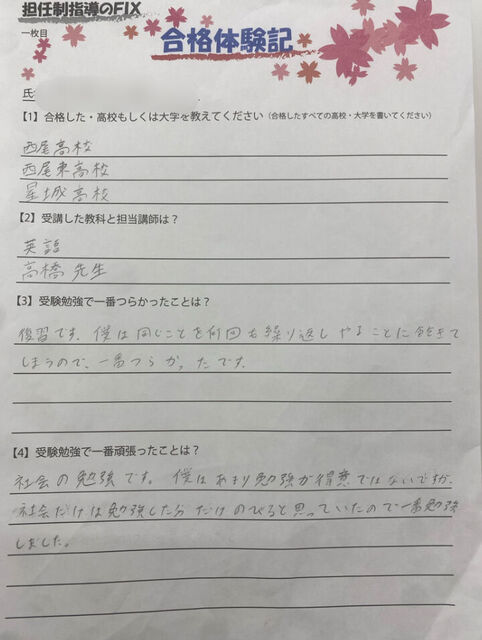 担任制指導のFIX
一枚目
合格体験記
氏
【1】合格した・高校もしくは大学を教えてください（合格したすべての高校・大学を書いてください）
西尾高校
西尾東高校
星城高校
【2】受講した教科と担当講師は？
英語
高橋先生
【3】受験勉強で一番つらかったことは？
復習です。僕は同じことを何回も繰り返しやることに飽きて
しまうので、一番つらかったです。
【4】受験勉強で一番頑張ったことは？
社会の勉強です。僕はあまり勉強が得意ではないですが、
社会だけは勉強した分だけのびると思っていたので一番勉強
しました。